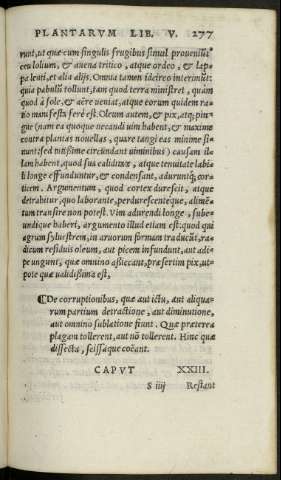 PLANTARVM LIB. V. 277
runt, ut quæ cum singulis frugibus simul proveniũt:
ceu lolium, & avena tritico, atque ordeo, & lap⸗
pa leati, et alia alijs. Omnia tamen idcirco interimũt:
quia pabulũ tollunt, tam quod terra ministret, quàm
quod à sole, & aëre veniat, atque eorum quidem ra⸗
tio manifesta ferè est. Oleum autem, & pix, atq; pin⸗
gue (nam ea quoque necandi uim habent, & maximè
contra plantas nouellas, quare tangi eas minime si⸗
nunt: sed notissime circundant uiminibus) causam il⸗
lam habent, quod sua caliditate, atque tenuitate labi⸗
li longe effunduntur, & condensant, aduruntq; cor⸗
ticem. Argumentum, quod cortex durescit, atque
detrahitur, quo laborante, perdurescenteque, alimẽ⸗
tum transire non potest. Vim adurendi longe, sube⸗
undique haberi, argumento illud etiam est: quod qui
agrum syluestrem, in aruorum formam traducũt, ra⸗
dicum residuis oleum, aut picem infundunt, aut adi⸗
pe ungunt, quæ omnino afficcant, præsertim pix, ut⸗
pote quæ ualidissima est,
De corruptionibus, quæ aut ictu, aut aliqua⸗
rum partium detractione, aut diminutione,
aut omnino sublatione fiunt. Quæ præterea
plagam tollerent, aut nõ tollerent. Hinc quæ
dissecta, scissáque coëant.
CAPVT XXIII.
S iiij Restant